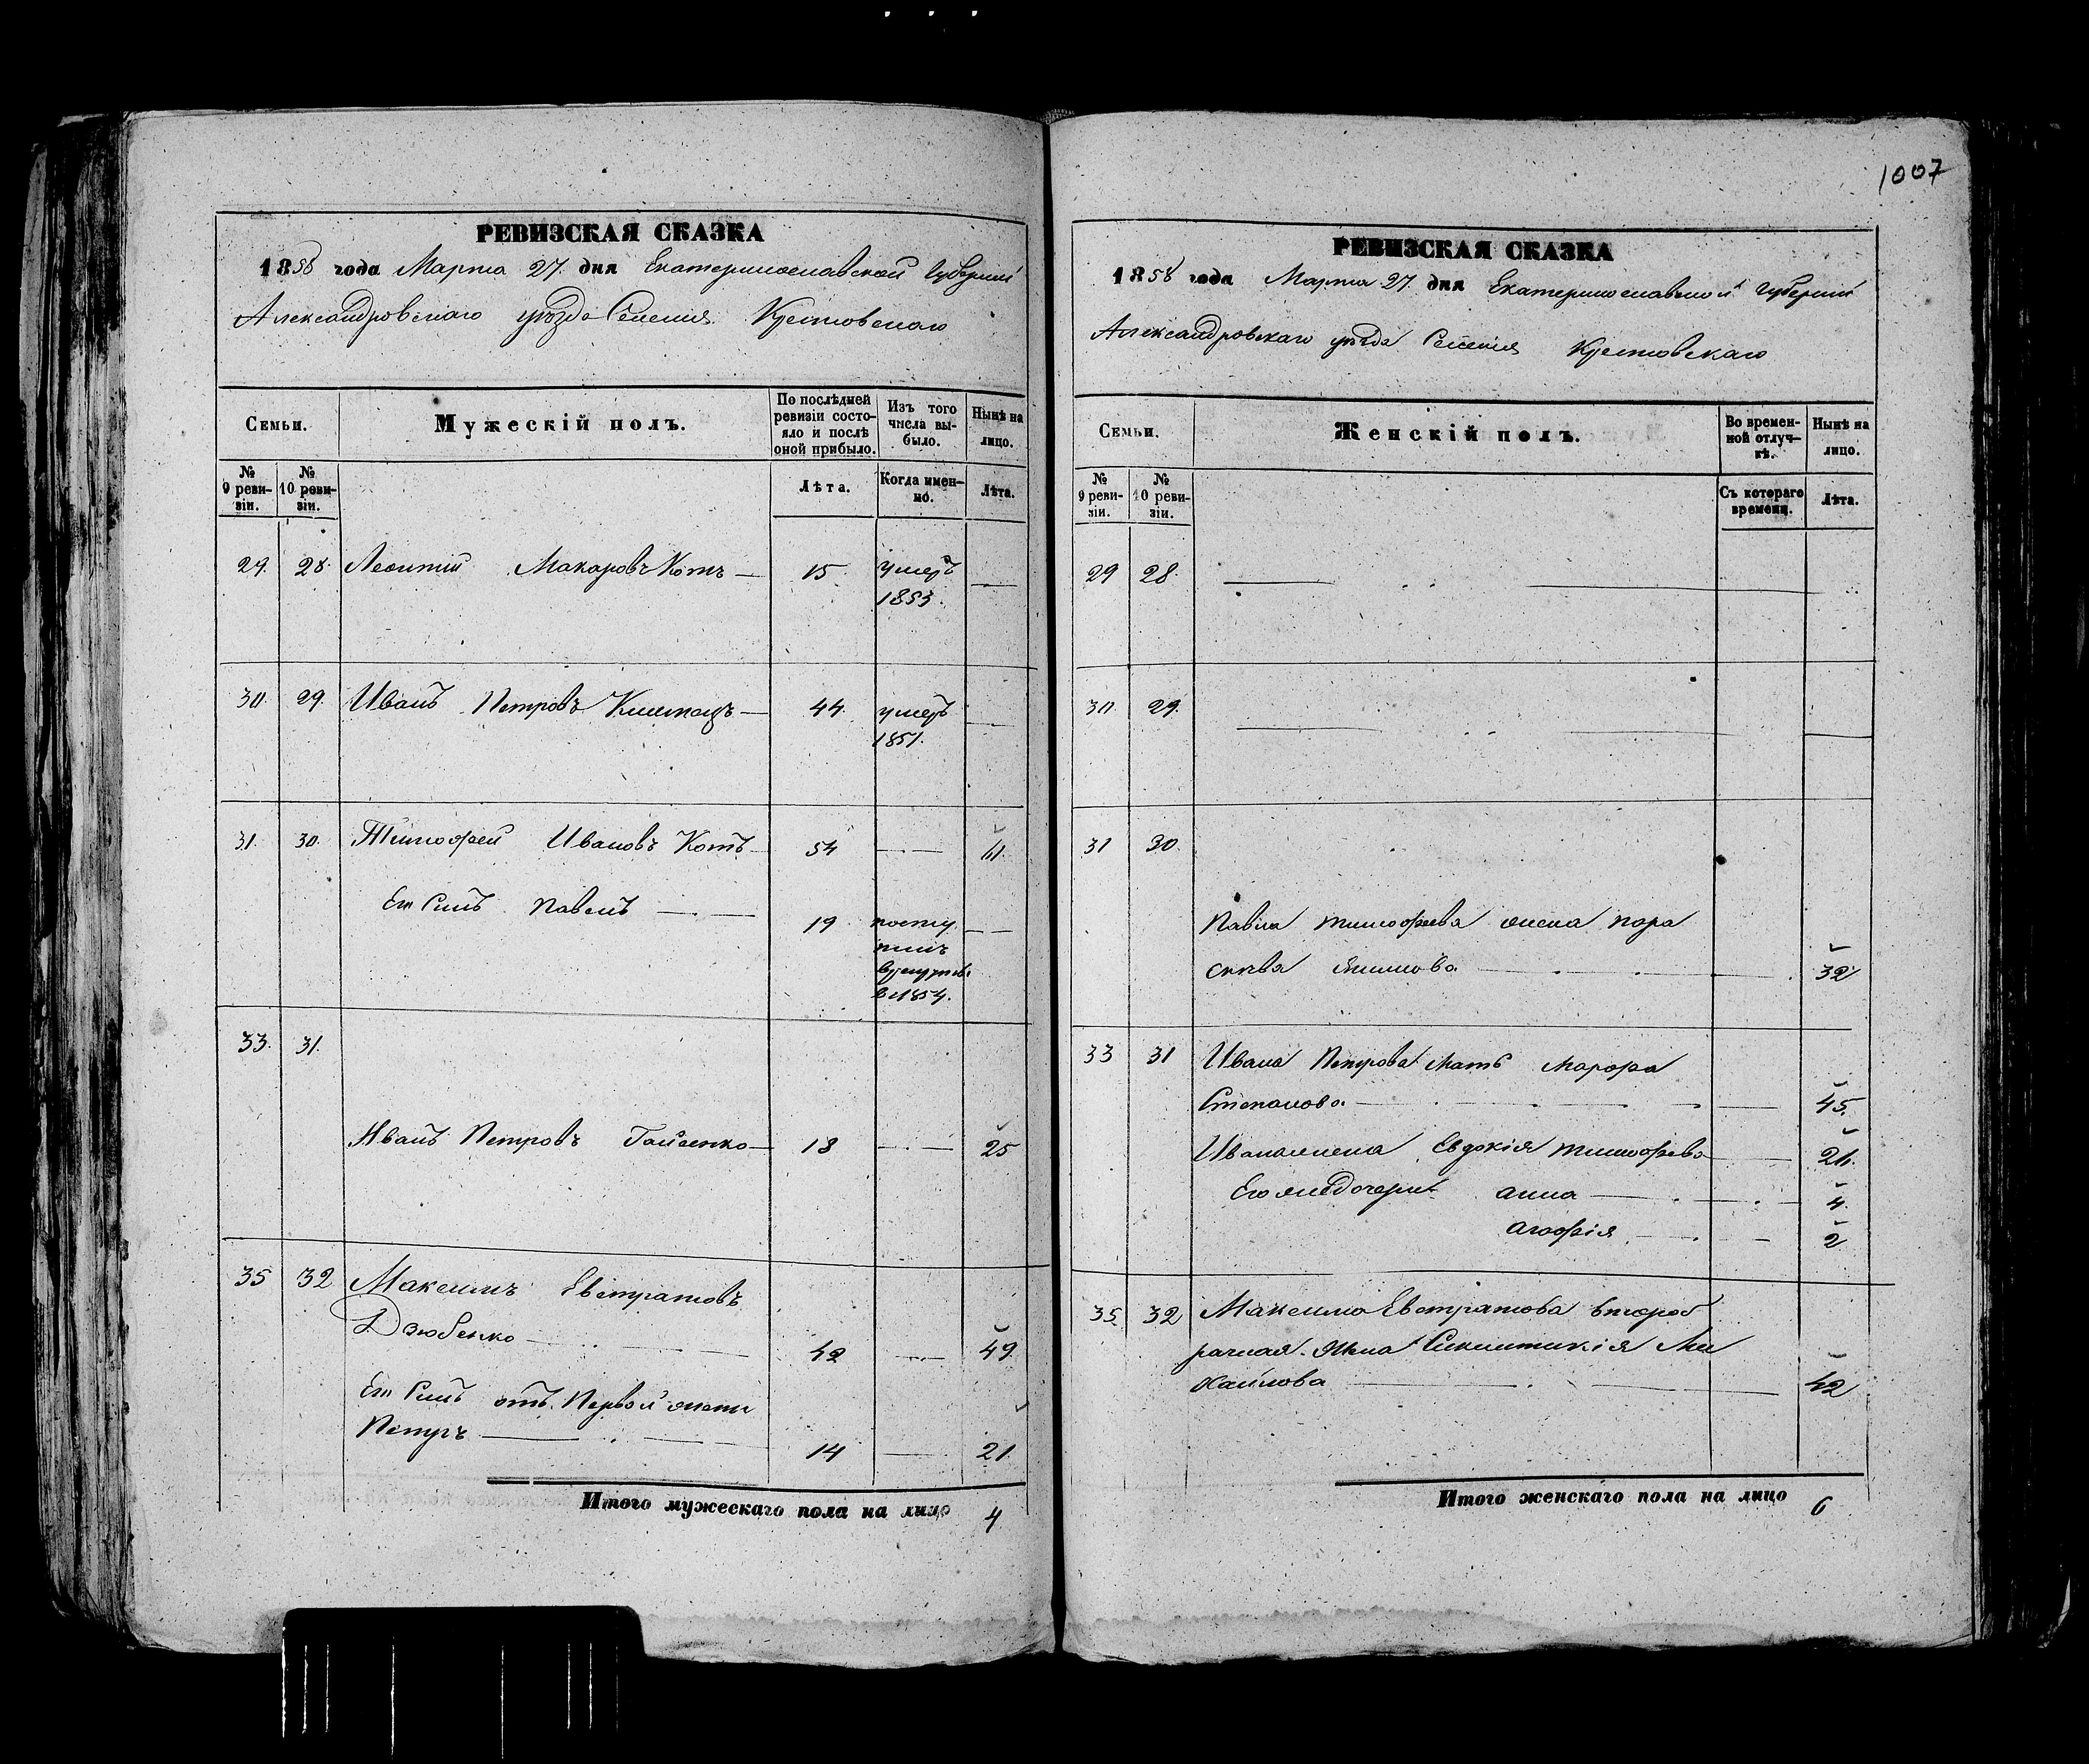 1007
РЕВИЗСКАЯ СКАЗКА
1858 года Марта 27 дня Екатеринославской Губернии
Александровскаго уѣзда Селения Крестовскаго
Семьи.
Мужескій полъ.
По послѣдней ревизіи состояло и послѣ оной прибыло.
Изъ того числа выбыло.
Нынѣ на лицо.
№ 9 ревизіи.
№ 10 ревизіи.
Лѣта.
Когда именно.
Лѣта.
29. 28. Леонтій Макаровъ Котъ — 15 умеръ —
1853.
30. 29. Иванъ Петровъ — 44. умеръ —
1851.
31. 30. Тимофей Ивановъ Котъ 54 —
Его Сынъ Павелъ — 19 посту —
пилъ
в 1854.
33. 31.
Иванъ Петровъ — 18 — 25
35 32 Максимъ Евстратовъ
Дзюбенко — 42 — 49
Его Сынъ отъ Первой жены
Петръ — 14 — 21.
Итого мужескаго пола на лицо 4
РЕВИЗСКАЯ СКАЗКА
1858 года Марта 27 дня Екатеринославской Губернии
Александровскаго уѣзда Селения Крестовскаго
Семьи.
Женскій полъ.
Во временной отлучкѣ.
Нынѣ на лицо.
№ 9 ревизіи.
№ 10 ревизіи.
Съ котораго времени.
Лѣта.
29 28. —
30. 29. —
31 30.
Павла Тимофеева жена Пора
сковя — 32
33 31 Ивана Петрова Мать Марфа
Степанова — 45.
Ивана жена Евдокія Тимофева — 26.
Его же дочери Анна — 4.
Агафія — 2
35. 32 Максима Евстратова второб
рачная жена Ми
хайлова — 42
Итого женскаго пола на лицо 6